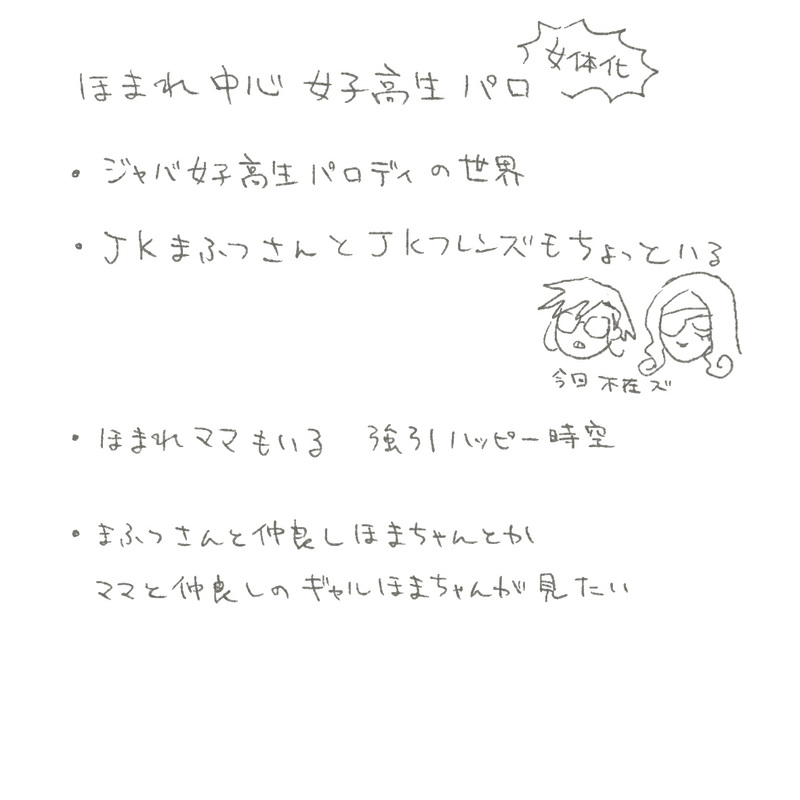 ほまれ中心 女子高生パロ 女体化
・ジャバ女子高生パロディの世界
・JKまふつさんとJKフレンズもちょっといる
今回不在ズ
・ほまれママもいる 強引ハッピー時空
・まふつさんと仲良しほまちゃんとか
ママと仲良しのギャルほまちゃんが見たい